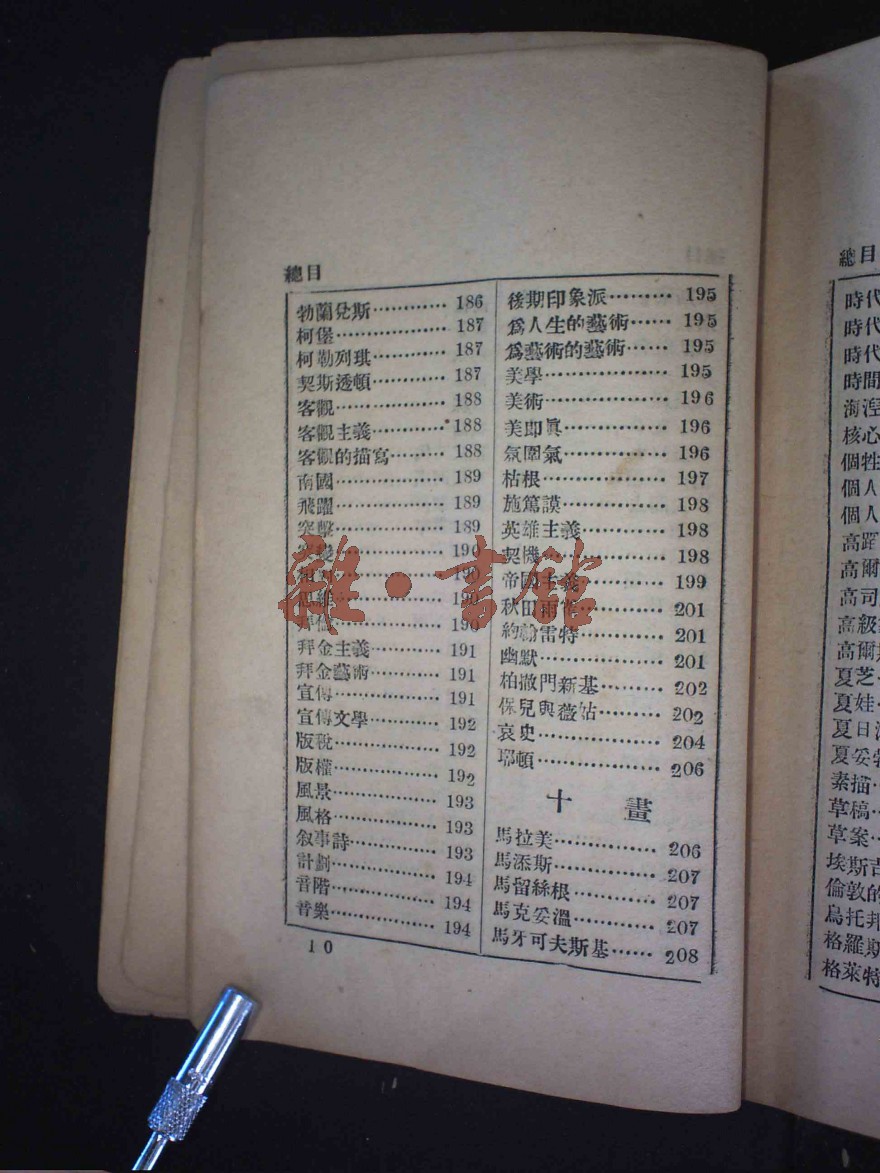 總目
勃蘭兌斯………… 186
柯堡……………… 187
柯勒列琪………… 187
契斯透頓………… 187
客觀……………… 188
客觀主義………… 188
客觀的描寫……… 188
南國……………… 189
飛躍……………… 189
突擊……………… 189
突變……………… 190
190
思維……………… 190
190
拜金主義………… 191
拜金藝術………… 191
宣傳……………… 191
宣傳文學………… 192
版稅……………… 192
版權……………… 192
風景……………… 193
風格……………… 193
敘事詩…………… 193
計劃……………… 194
音階……………… 194
音樂……………… 194
10
後期印象派……… 195
爲人生的藝術…… 195
爲藝術的藝術…… 195
美學……………… 195
美術……………… 196
美即眞…………… 196
氛圍氣…………… 196
枯根……………… 197
施篤謨…………… 198
英雄主義………… 198
契機……………… 198
帝國主義………… 199
秋田雨雀………… 201
約翰雷特………… 201
幽默……………… 201
柏撒門新基……… 202
保兒與薇姑……… 202
哀史……………… 204
耶頓……………… 206
十畫
馬拉美…………… 206
馬添斯…………… 207
馬留絲根………… 207
馬克妥溫………… 207
馬牙可夫斯基…… 208
總目
時代
時代
時代
時間
海涅
核心
個性
個人
個人
高蹈
高爾
高司
高級
高爾斯
夏芝
夏娃
夏日
夏妥勃
素描
草稿
草案
埃斯吉
倫敦的
烏托邦
格羅斯
格萊特
雜·書館